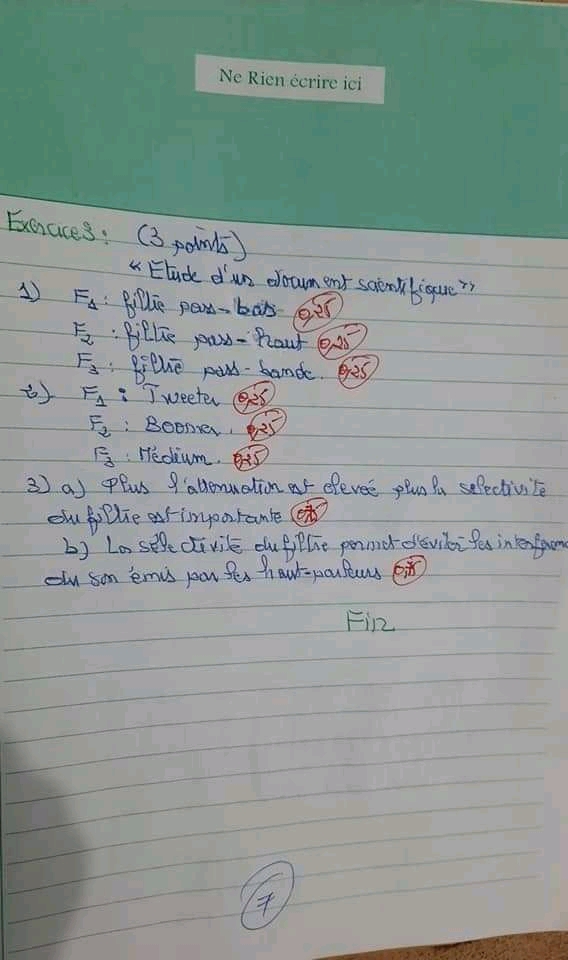 Ne Rien écrire ici
Exercice 3 : (3 points)
"Etude d'un document scientifique"
1) F1 : filtre pass-bas 0,25
F2 : filtre pass-haut 0,25
F3 : filtre pass-bande. 0,25
2) F1 : Tweeter 0,25
F2 : Boomer. 0,25
F3 : Médium. 0,25
3) a) Plus l'attenuation est elevée plus la selectivité
du filtre est importante
b) La sélectivité du filtre permet d'éviter les interferenc
du son émis par les haut-parleurs
Fin
7